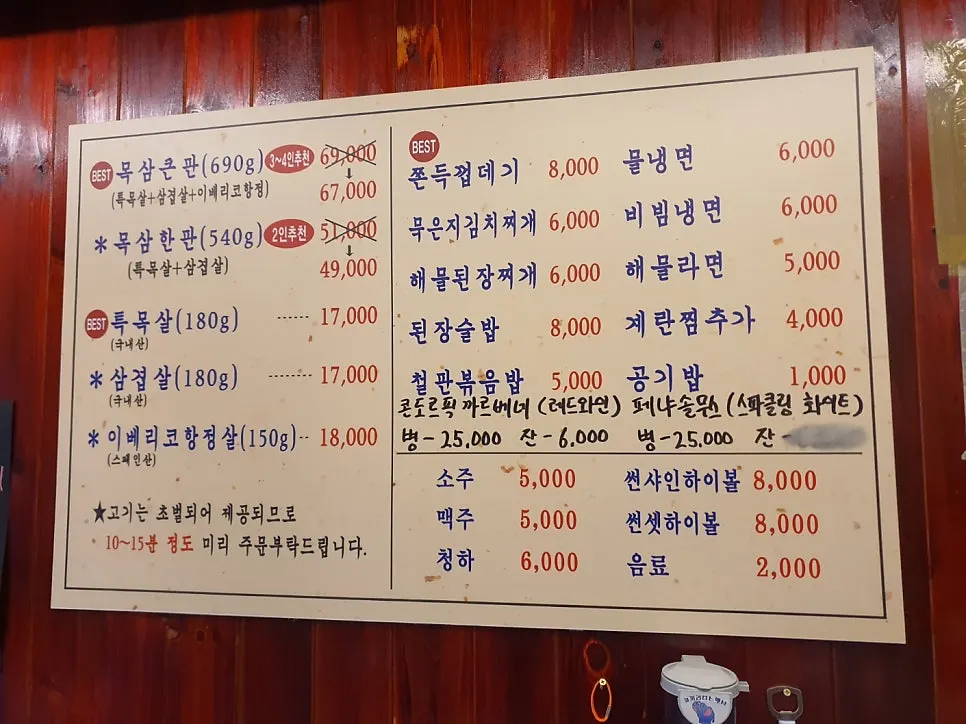 BEST 목삼큰판(690g) 3~4인추천 69,000
(특목살+삼겹살+이베리코항정) 67,000
* 목삼한판(540g) 2인추천 51,000
(특목살+삼겹살) 49,000
BEST 특목살(180g) ------ 17,000
(국내산)
* 삼겹살(180g) -------- 17,000
(국내산)
* 이베리코항정살(150g)-- 18,000
(스페인산)
★고기는 초벌되어 제공되므로
10~15분 정도 미리 주문부탁드립니다.
BEST
쫀득껍데기 8,000 물냉면 6,000
묵은지김치찌개 6,000 비빔냉면 6,000
해물된장찌개 6,000 해물라면 5,000
된장술밥 8,000 계란찜추가 4,000
철판볶음밥 5,000 공기밥 1,000
콘도르픽 까르베네 (레드와인) 페냐솔무스 (스파클링 화이트)
병-25.000 잔-6.000 병-25.000 잔-
소주 5,000 썬샤인하이볼 8,000
맥주 5,000 썬셋하이볼 8,000
청하 6,000 음료 2,000